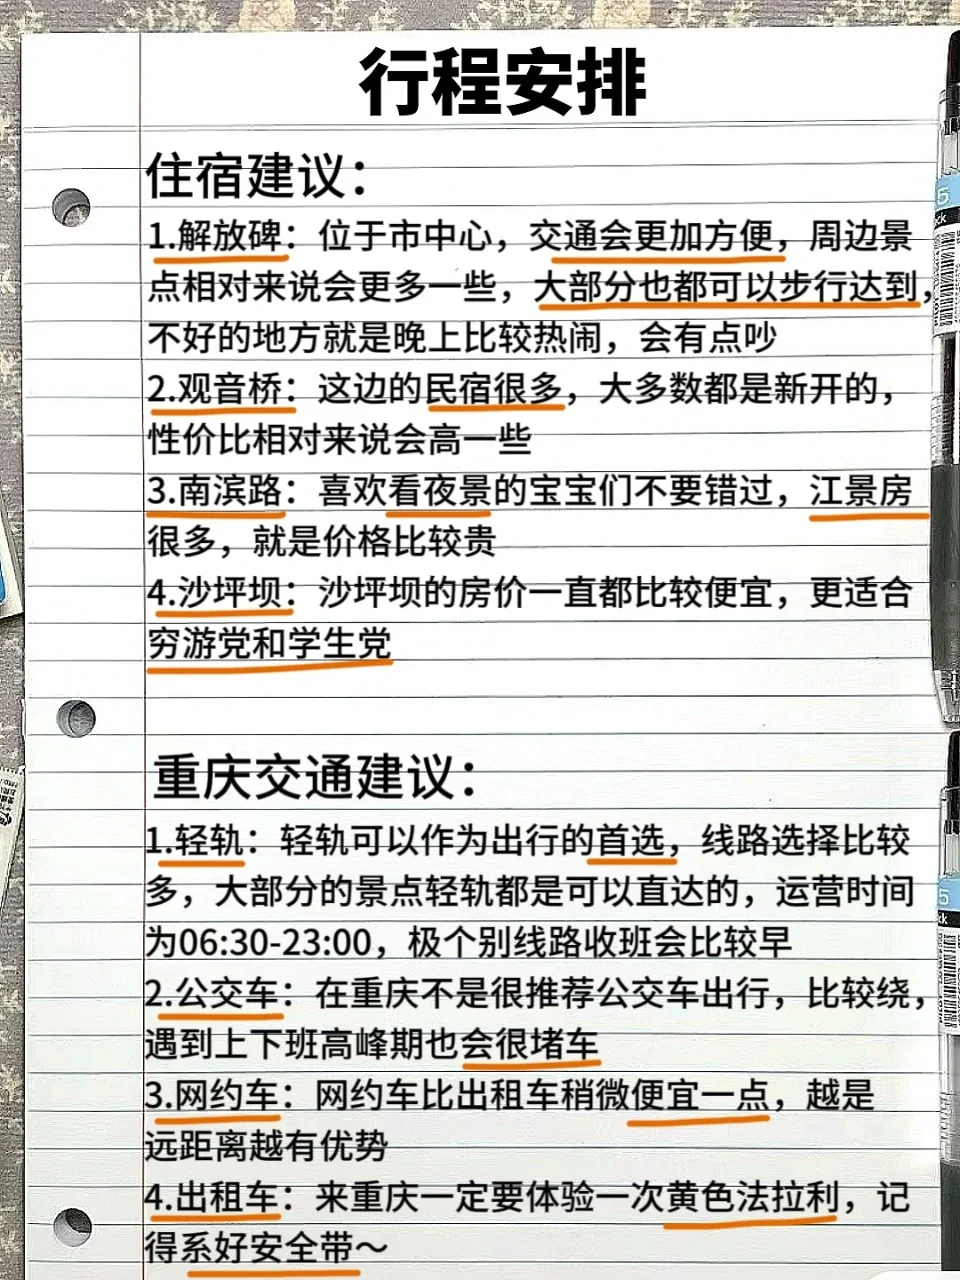 行程安排
住宿建议：
1.解放碑：位于市中心，交通会更加方便，周边景
点相对来说会更多一些，大部分也都可以步行达到，
不好的地方就是晚上比较热闹，会有点吵
2.观音桥：这边的民宿很多，大多数都是新开的，
性价比相对来说会高一些
3.南滨路：喜欢看夜景的宝宝们不要错过，江景房
很多，就是价格比较贵
4.沙坪坝：沙坪坝的房价一直都比较便宜，更适合
穷游党和学生党
重庆交通建议：
1.轻轨：轻轨可以作为出行的首选，线路选择比较
多，大部分的景点轻轨都是可以直达的，运营时间
为06:30-23:00，极个别线路收班会比较早
2.公交车：在重庆不是很推荐公交车出行，比较绕，
遇到上下班高峰期也会很堵车
3.网约车：网约车比出租车稍微便宜一点，越是
远距离越有优势
4.出租车：来重庆一定要体验一次黄色法拉利，记
得系好安全带～